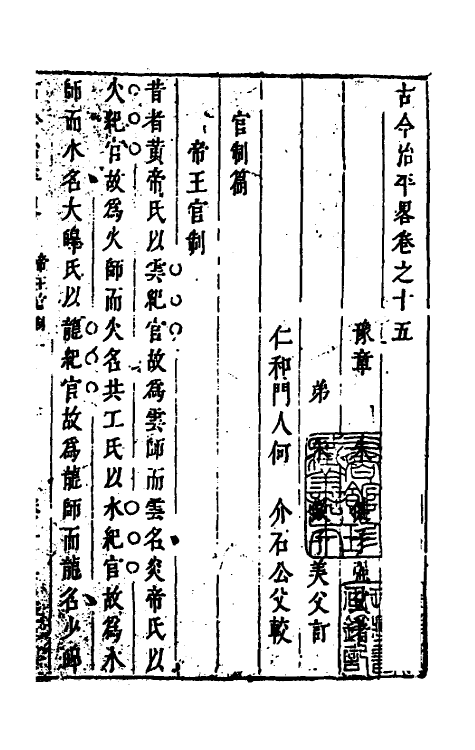 古今治平畧卷之十五
豫章
弟 美父訂
仁和門人何 介石公父較
官制篇
帝王官制
昔者黃帝氏以雲紀官故爲雲師而雲名炎帝氏以
火紀官故爲火師而火名共工氏以水紀官故爲水
師而水名大皡氏以龍紀官故爲龍師而龍名少皡